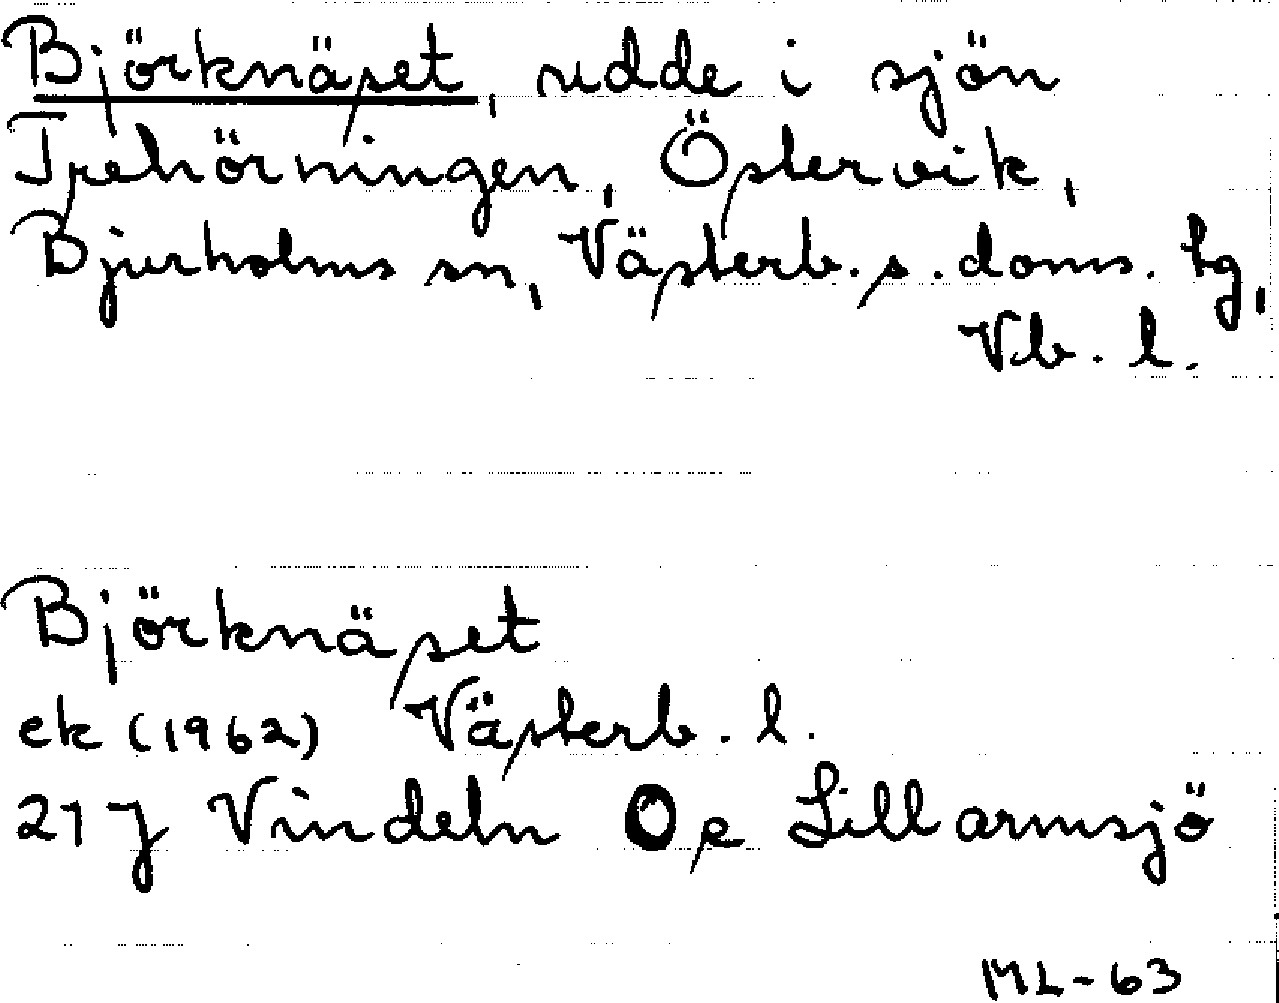 Björknäset, udde i sjön
Trehörningen, Östervik,
Bjurholms sn, Västerb. s. doms. tg,
Vb. l.
Björknäset
ek (1962) Västerb. l.
21 J Vindeln Oe Lillarmsjö
ML-63